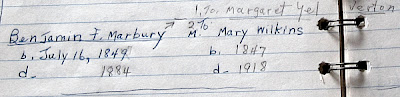 1. To. Margaret Yel verton
Benjamin F. Marbury 2 To. M. Mary Wilkins
b. July 16, 1849 b. 1847
d. 1884 d. 1918